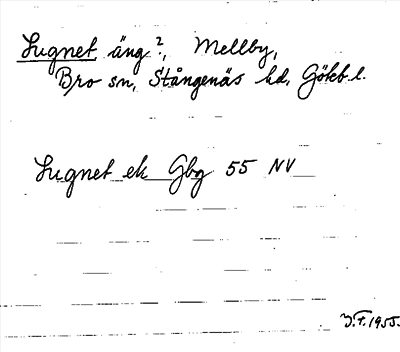 Lugnet äng?, Mellby,
Bro sn, Stångenäs hd, Götebl.
Lugnet ek Gbg 55 NV
J.F. 1955.